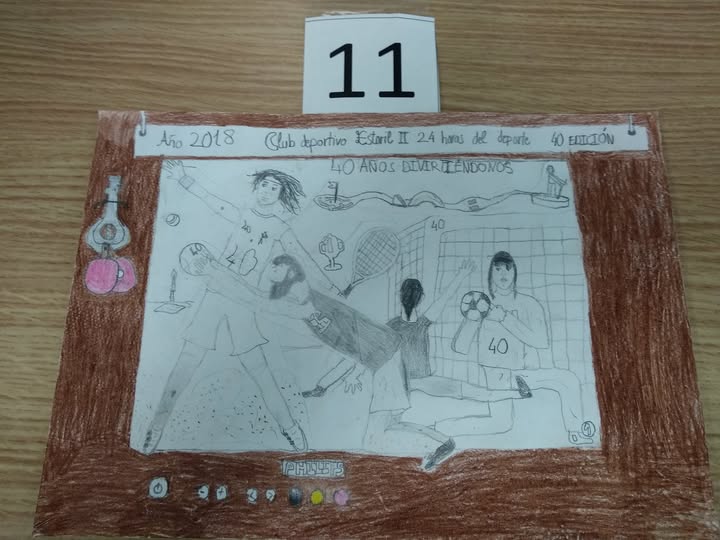 11
Año 2018 Club deportivo Estoril II 24 horas del deporte 40 EDICIÓN
40 AÑOS DIVIRTIÉNDONOS
40
40
40
40
PHILIPS